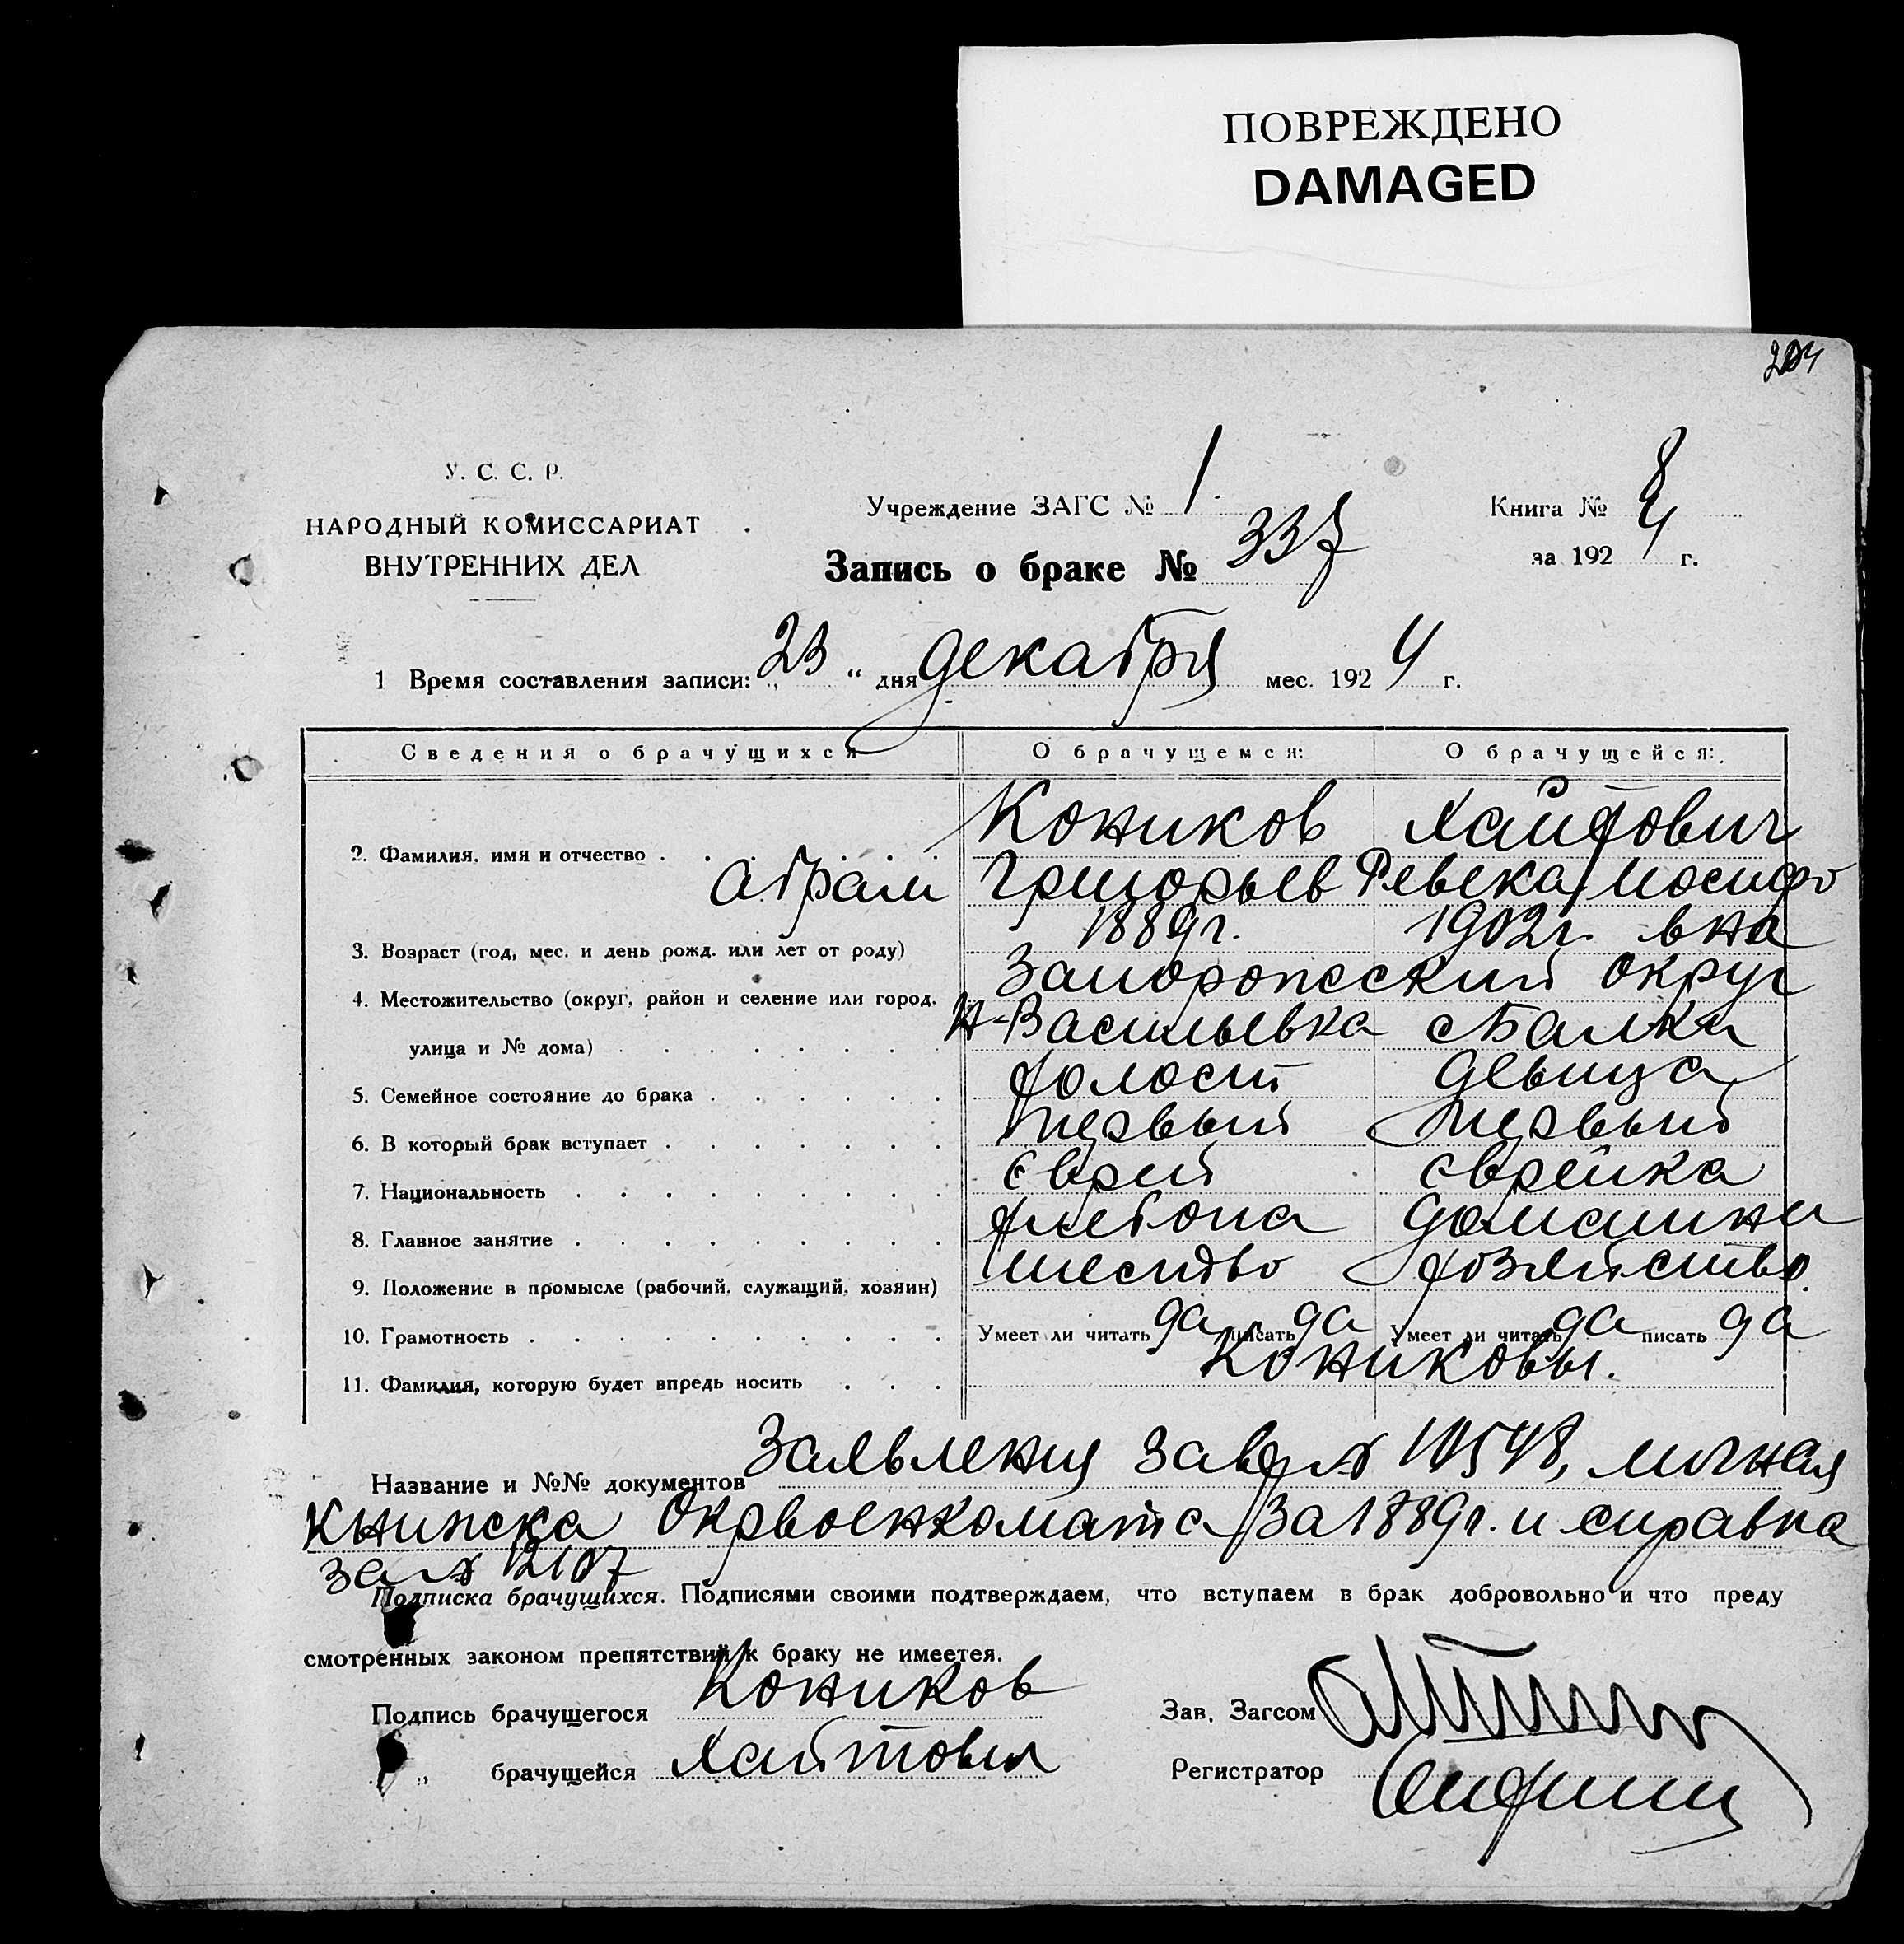 ПОВРЕЖДЕНО
DAMAGED
204
У. С. С. Р.
НАРОДНЫЙ КОМИССАРИАТ
ВНУТРЕННИХ ДЕЛ
Учреждение ЗАГС № 1
Книга № 8
за 1924 г.
Запись о браке № 337
1 Время составления записи: „23“ дня декабря мес. 1924 г.
Сведения о брачущихся О брачущемся: О брачущейся:
Коников Хайтович
2. Фамилия, имя и отчество
Абрам Григорьев Ревека Иосифо
1889г. 1902г. вна
3. Возраст (год, мес. и день рожд. или лет от роду)
Запорожский округ
4. Местожительство (округ, район и селение или город,
Н-Васильевка с Балки
улица и № дома)
холост девица
5. Семейное состояние до брака
первый первый
6. В который брак вступает
еврей еврейка
7. Национальность
хлебопа домашнее
8. Главное занятие
шество хозяйство.
9. Положение в промысле (рабочий, служащий, хозяин)
10. Грамотность Умеет ли читать да писать да Умеет ли читать да писать да
Кониковы.
11. Фамилия, которую будет впредь носить
Название и №№ документов Заявления за № 10548, личная
книжка Окрвоенкомата за 1889г. и справка
за № 2107
Подписка брачущихся. Подписями своими подтверждаем, что вступаем в брак добровольно и что преду
смотренных законом препятствий к браку не имеется.
Подпись брачущегося Коников
Зав. Загсом
„ брачущейся Хайтович
Регистратор